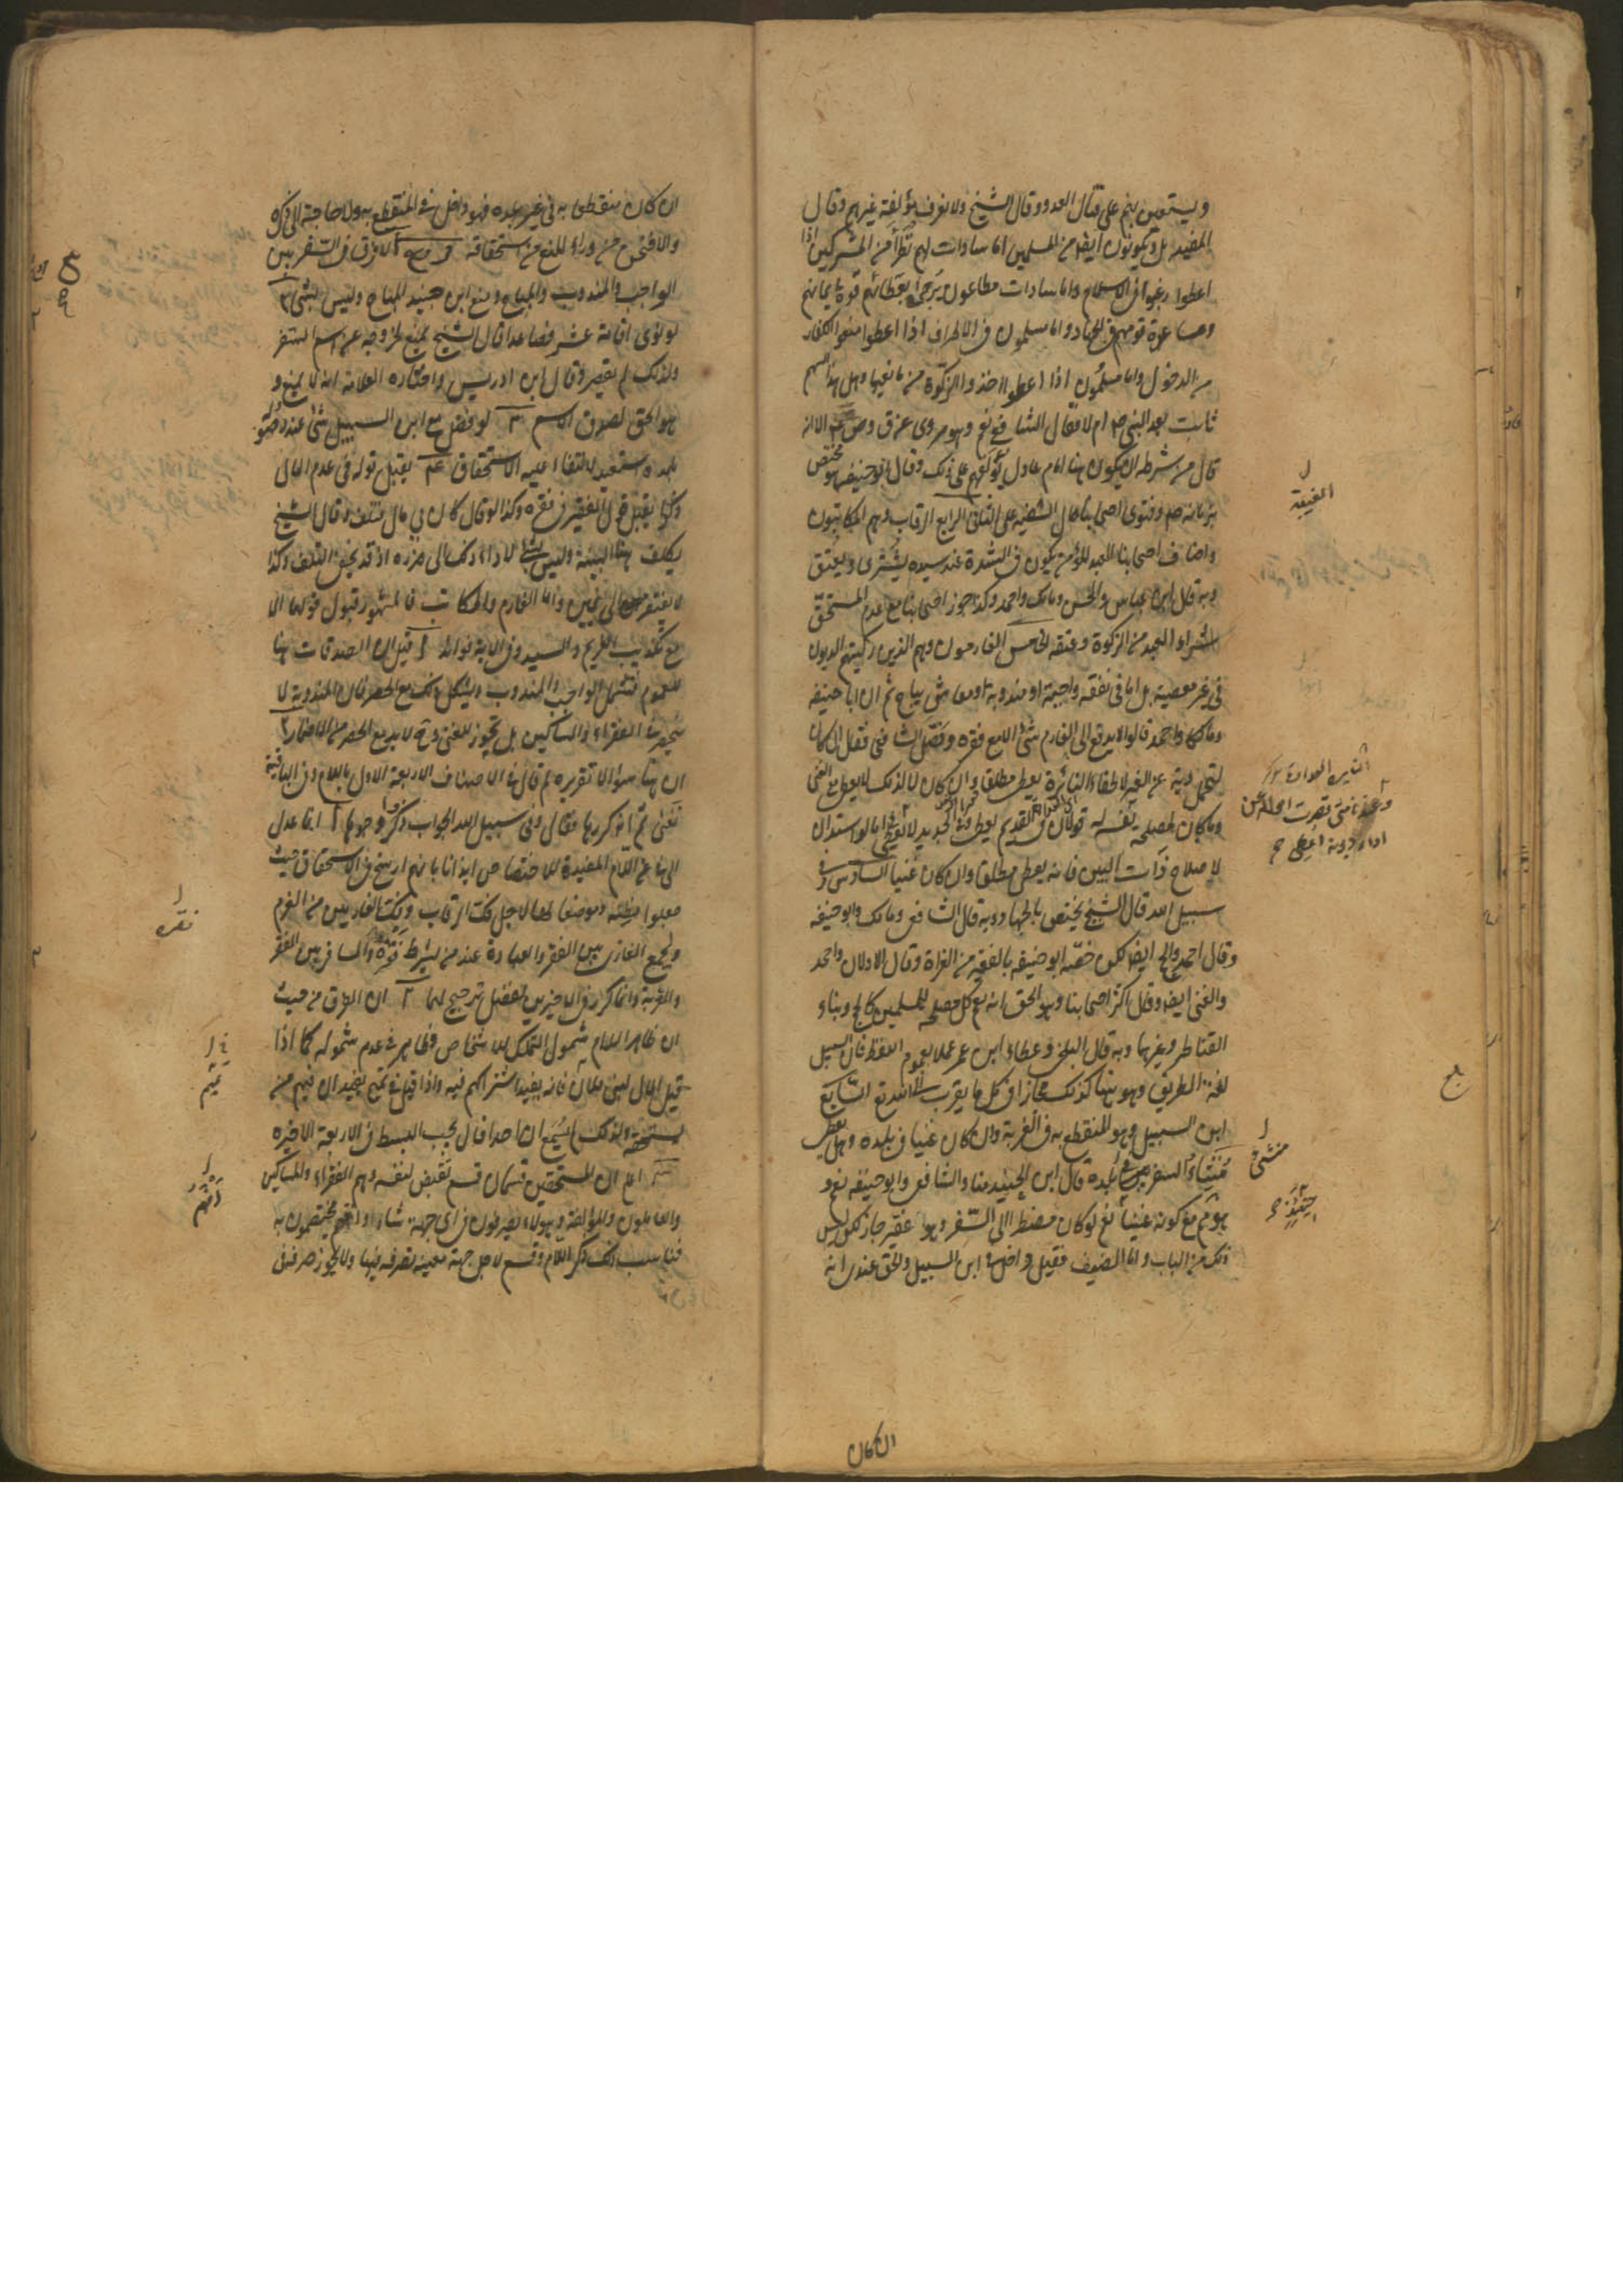 ويستعين بهم على قتال العدو وقال الشيخ ولا نعرف مؤلفة غيرهم وقال
المفيد بل ويكونون ايضا من المسلمين اما سادات لهم نظراء من المشركين اذا
اعطوا رغبوا في الاسلام واما سادات مطاعون يرجى بعطائهم قوة ايمانهم
ومساعدة قومهم في الجهاد واما مسلمون في الاطراف اذا اعطوا منعوا الكفار
من الدخول واما مسلمون اذا اعطوا اخذوا الزكوة من مانعيها وهل هذا السهم
ثابت بعد النبي ص ام لا فقال الشافعي نعم وهو مروى عن ق ع الا انه
قال من شرطه ان يكون هنا امام عادل يؤلفهم على ذلك وقال ابو حنيفه هو مختص
بزمانه ص وفتوى اصحابنا حال الغيبة على الثاني الرابع الرقاب وهم المكاتبون
واضاف اصحابنا العبد المؤمن يكون في الشدة عند سيده يشترى ويعتق
وبه قال ابن عباس والحسن ومالك واحمد وكذا جوز اصحابنا مع عدم المستحق
شراء العبد من الزكوة وعتقه الخامس الغارمون وهم الذين ركبتهم الديون
في غير معصية بل اما في نفقه واجبة او مندوبة او معاش مباح ثم ان ابا حنيفه
ومالكا واحمد قالوا لا يدفع الى الغارم شئ الا مع فقره وفصل الشافعي فقال ان كان
لتحمل دية عن الغير لاطفاء النائرة يعطى مطلقا وان كان لا لذلك لا يعطى مع الغنى
وما كان لمصلحة نفسه له قولان في القديم يعطى وفي الجديد لا يعطى اما لو استدان
لاصلاح ذات البين فانه يعطى مطلقا وان كان غنيا السادس في
سبيل الله قال الشيخ يختص بالجهاد وبه قال الشافعي ومالك وابو حنيفه
وقال احمد والحج ايضا لكن خصه ابو حنيفه بالفقير من الغزاة وقال الاولان واحمد
والغنى ايضا وقال اكثر اصحابنا وهو الحق انه مع كل مصلحة للمسلمين كالحج وبناء
القناطر وغيرها وبه قال البلخي وعطاء وابن عمر عملا بعموم اللفظ فان السبيل
لغة الطريق وهو هنا كذلك مجازا في كل ما يقرب الى الله تع السابع
ابن السبيل وهو المنقطع به في الغربة وان كان غنيا في بلده وهل يعطى
منشئ السفر من بلده قال ابن الجنيد منا والشافعي وابو حنيفه نعم و
هو ثم مع كونه غنيا نعم لو كان مضطرا الى السفر وهو فقير جاز لكن ليس
ذلك من الباب واما الضيف فقيل داخل في ابن السبيل والحق عندى انه
الغيبة
منشئ
حينئذ
ان كان
ان كان منقطعا به في غير بلده فهو داخل في المنقطع به ولا حاجة الى ذكره
والا فنحن من وراء المنع من استحقاقه فروع ا لا فرق في السفر بين
الواجب والمندوب والمباح ومنع ابن جنيد المباح وليس بشئ ٢
لو نوى اقامة عشر فصاعدا قال الشيخ يمنع لخروجه عن اسم السفر
ولذلك لم يقصر وقال ابن ادريس واختاره العلامة انه لا يمنع و
هو الحق لصدق الاسم ٣ لو فضل مع ابن السبيل شئ عند وصوله
بلده استعيد لانتفاء علية الاستحقاق ع٣ يقبل قوله في عدم المال
وكذا يقبل قول الفقير في فقره وكذا لو قال كان لي مال فتلف وقال الشيخ
يكلف هنا البينة وليس بشئ لاداء ذلك الى ضرره اذ قد يخفى التلف وكذا
لا يفتقر الى يمين واما الغارم والمكاتب فالمشهور قبول قولهما الا
مع تكذيب الغريم والسيد وفي الاية فوائد ا قيل ان الصدقات هنا
للعموم فتشمل الواجب والمندوب ويشكل ذلك مع الحصر فان المندوبة لا
تنحصر في الفقراء والمساكين بل تجوز للغنى وح لا بد مع الحصر من الاضمار ٢
ان هنا سؤالا تقريره لم قال في الاصناف الاربعة الاول باللام وفي الباقية
بفي ثم انه كررها فقال وفي سبيل الله الجواب ذكر وجوه ا انما عدل
الى في عن اللام المفيدة للاختصاص ايذانا بانهم ارسخ في الاستحقاق حيث
جعلوا مظنة وموضعا لها لاجل فك الرقاب وفك الغارمين من الغرم
ولجمع الغازى بين الفقر والعبادة عند من يشرط فقره والمسافر بين الفقر
والغربة وانما كرر في الاخيرين لفضل ترجيح لهما ٢ ان الفرق من حيث
ان ظاهر اللام شمول التملك للاشخاص وظاهر في عدم شموله كما اذا
قيل المال لبنى فلان فانه يفيد اشتراكهم فيه واذا قيل في تميم يفيد ان فيهم من
يستحقه ولذلك لم يسمع ان احدا قال يجب البسط في الاربعة الاخيره
٣ ان المستحقين قسمان قسم يقبض لنفسه وهم الفقراء والمساكين
والعاملون والمؤلفة وهؤلاء يصرفون في اى جهة شاؤا وانهم مختصون به
فناسب ذلك ذكر اللام وقسم لاجل جهة معينة تصرف فيها ولا يجوز صرف في
فقره
تميم